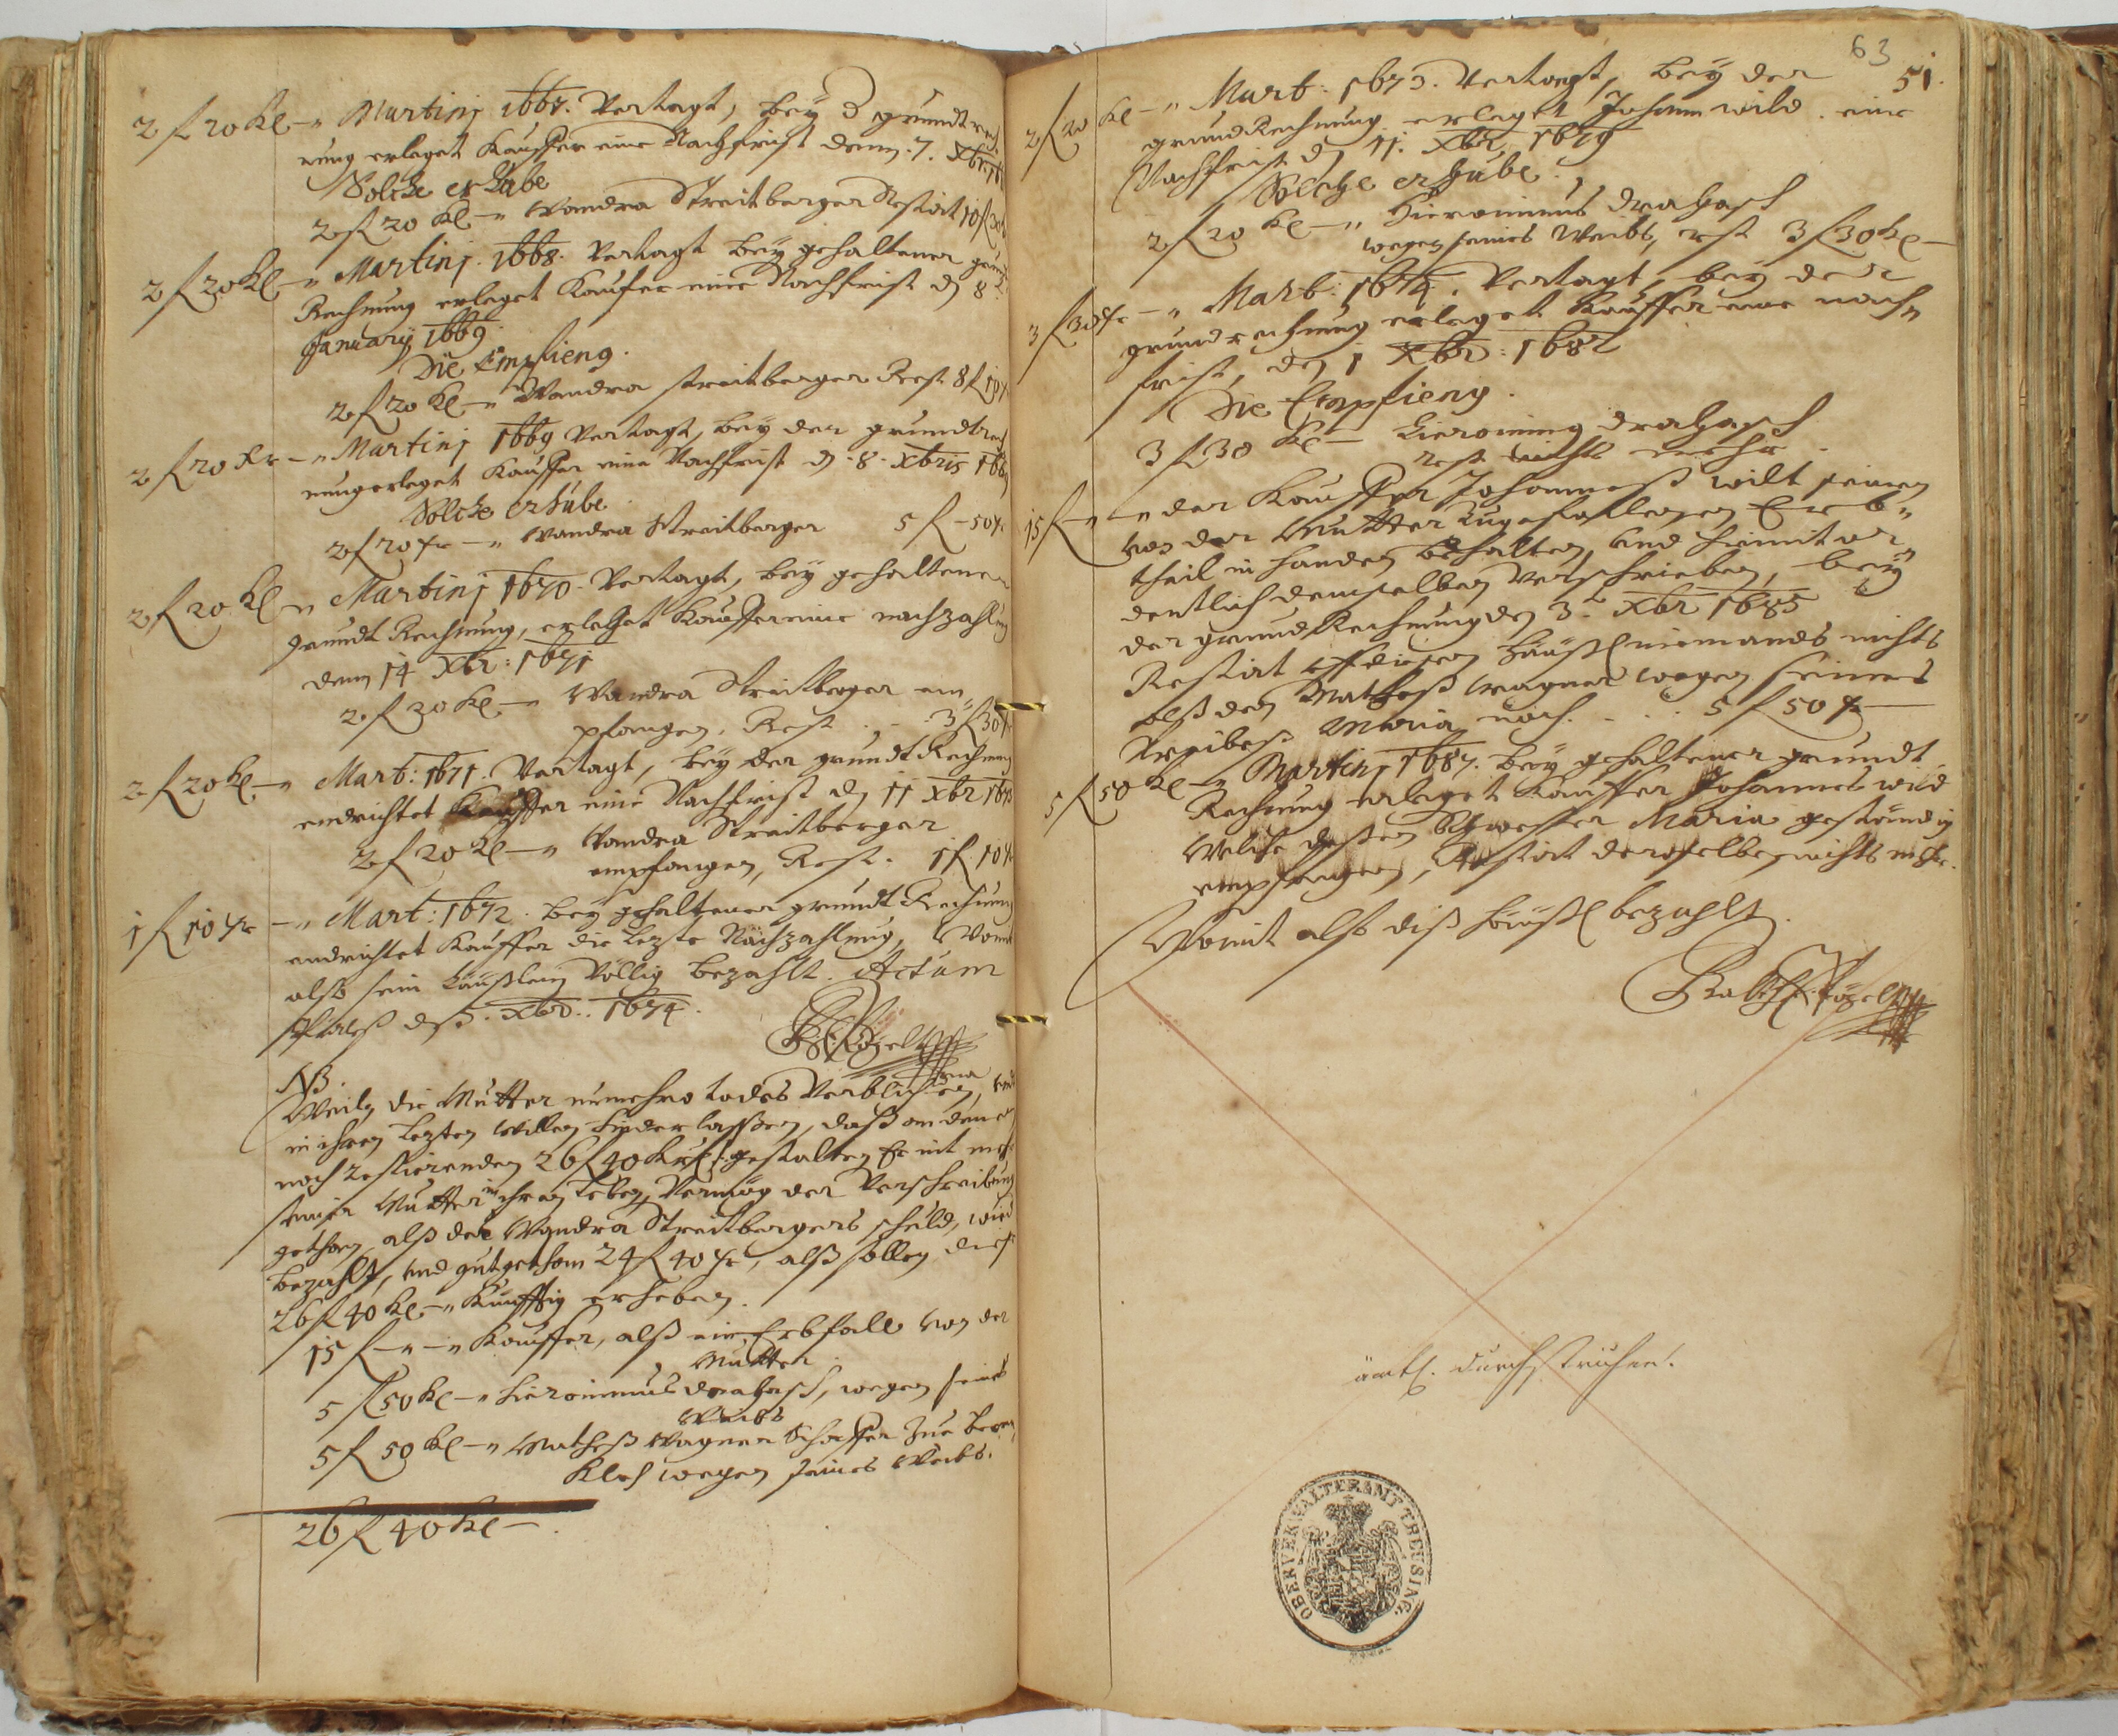 2 f 20 Kl –„ Martinj 1667. Vertagt, bey d grundtrech
nung erleget Kauffer eine Nachfrist denn. 7. Xbr.
Solche erhube
2 f 20 Kl –„ Wandra Streitberger Restirt 10 f 30
2 f 20 Kl –„ Martinj. 1668. Vertagt bey gehaltener
Rechnung erleget Kaufer eine Nachfrist d 8
January 1669.
Die Empfieng.
2 f 20 Kl –„ Wandra streitberger Rest 8 f 10
2 f 20 Kr –„ Martinj 1669 Vertagt, bey der grundtrech
nung erleget Kauffer eine Nachfrist d. 8. Xbris 166
Solche erhube.
2 f 20 Kr –„ Wandra Streitberger 5 f – 50 Kr
2 f 20 Kl –„ Martinj 1670. Vertagt, bey gehaltener
grundt Rechnung, erleget Kauffer eine nachzahlung
denn 14 Xbr: 1671
2 f 20 Kl –„ Wandra Streitberger em„
pfangen, Rest . . . 3 f 30 Kr
2 f 20 Kl –„ Mart: 1671. Vertagt, bey der grundt Rechnung
endrichtet Kauffer eine Nachfrist d 11 Xbr 167
2 f 20 Kl –„ Wandra Streitberger
empfangen, Rest. 1 f 10 Kr
1 f 10 Kr –„ Mart: 1672. bey gehaltener grundt Rechnung
endrichtet Kauffer die Lezte Nachzahlung, Womit
also sein häußlein Völlig bezahlt. Actum
Xbr.. 1674.
NB.
Weiln die Mutter nunmehro todes Verblichen, und
in ihren Lezten willen hinderlassen, daß an denen
noch restirenden 26 f 40 Kr gestalten Er mit
seiner Mutter in ihren Leben, Vermög der Verschreibung
gethan, alß der Wandra Streitbergers schuld, wird
bezahlt, und gutgethan 24 f 40 Kr, alß sollen diese
26 f 40 Kl –„ Künfftig erheben.
15 f –„–„ Kauffer, alß ein Erbfall von der
Mutter.
5 f 50 Kl –„ Hieronimus drahasch, wegen seines
Weibs
5 f 50 Kl –„ Matheß Wagner Schaffer zue
wegen seines Weibs.
26 f 40 Kl –.
63
51.
2 f 20 Kl –„ Mart: 1673. Vertagt, bey der
grundRechnung erleget Johann wild. eine
Nachfrist d 11. Xbr 1679
Solche erhube.
2 f 20 Kl –„ Hieronimus drahasch
wegen seines Weibs, rest 3 f 30 Kl –
3 f 30 Kr –„ Mart: 1674. Vertagt, bey der
grundrechnung erleget Kauffer eine nach„
frist, den 1 Xbr: 1682
Die Empfieng.
3 f 30 Kl – Hieronimy drahasch
rest nichts mehr.
15 f –„–„ der Kauffer Johanneß wilt seinen
von der Mutter zugefallenen Erb„
theil in handen behalten, und hiemit or„
dentlich demselben Verschrieben, bey
der grundRechnung den 3. Xbr 1685
Restirt uff diesem häußl niemands nichts
alß den Matheß Wagner wegen seines
Weibes Maria noch. . . . 5 f 50 Kr –
5 f 50 Kl –„ Martinj 1687. bey gehaltener grundt
Rechnung erleget Kauffer Johannes wild
Welche dessen Schwester Maria geständig
empfangen, Restirt derselben nichts mehr.
Womit also diß häußl bezahlt.
ämtl. durchstrichen.
OBERVERWALTERAMT THEUSING